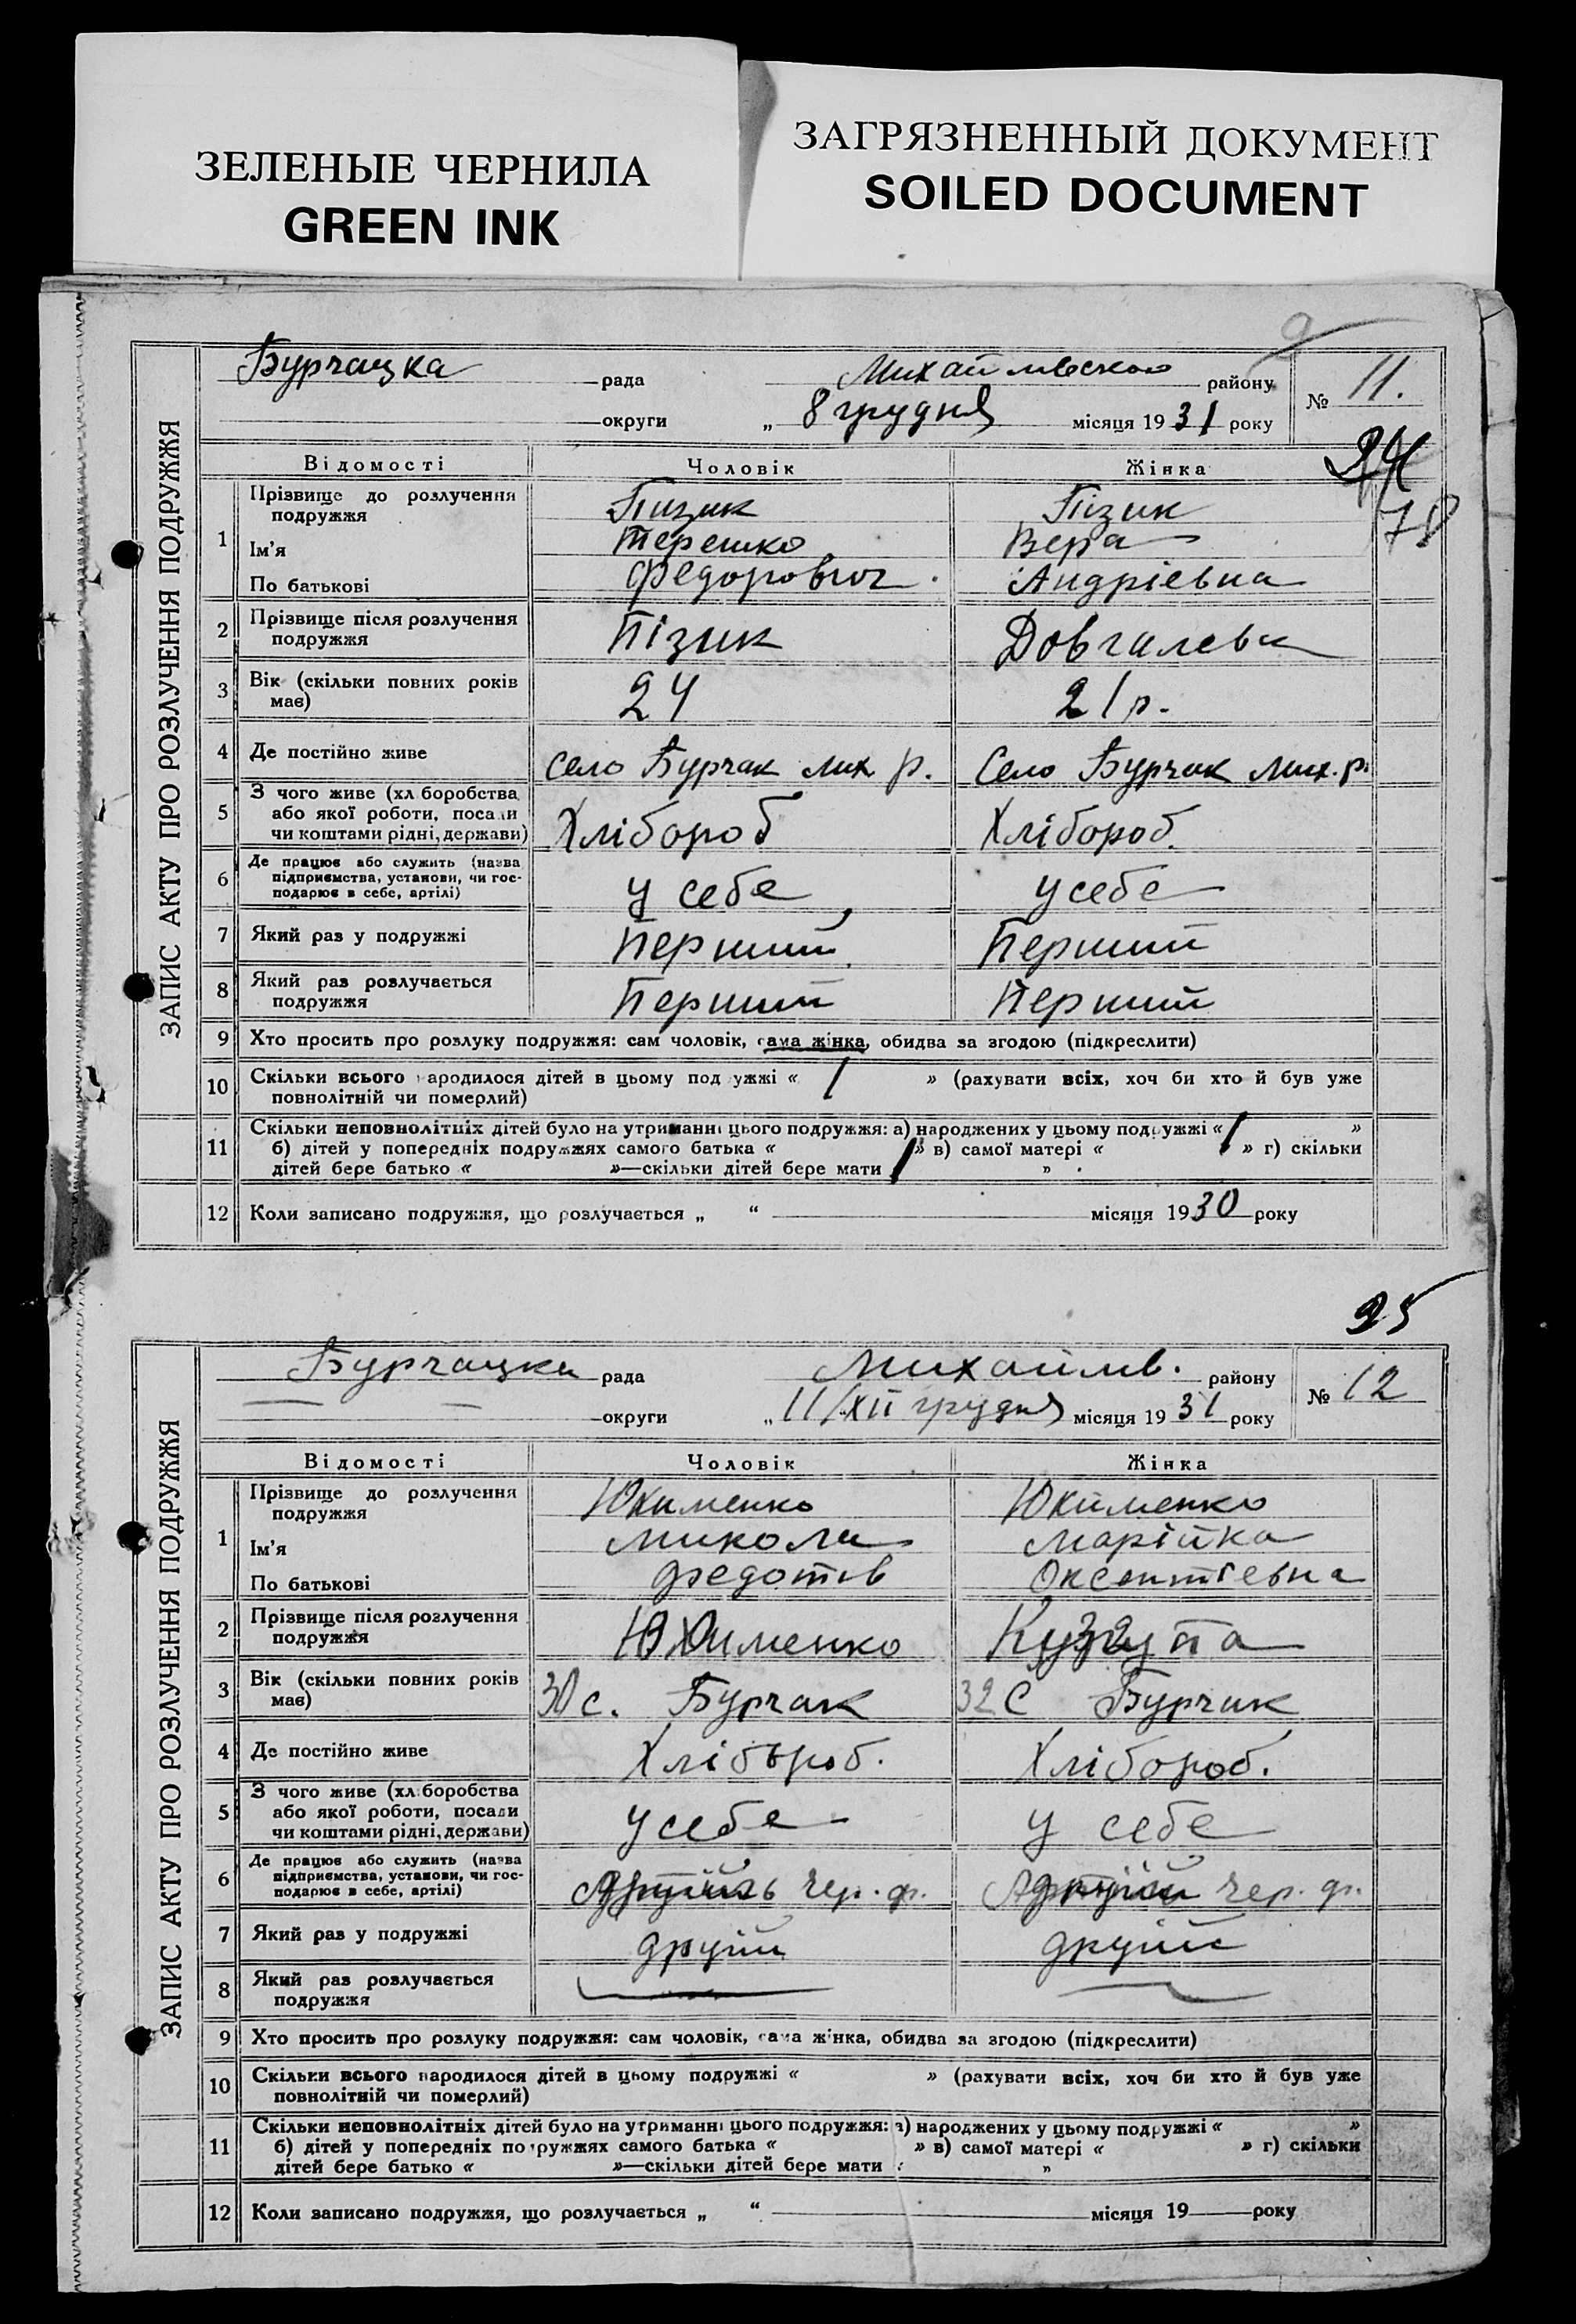 ЗЕЛЕНЫЕ ЧЕРНИЛА
GREEN INK
ЗАГРЯЗНЕННЫЙ ДОКУМЕНТ
SOILED DOCUMENT
ЗАПИС АКТУ ПРО РОЗЛУЧЕННЯ ПОДРУЖЖЯ
Бурчацка рада Михайлівского району
№ 11.
округи „ 8 грудня місяця 1931 року
Відомості Чоловік Жінка
24
78
1 Прізвище до розлучення подружжя Пизик Пізик
Ім’я Терешко Вера
По батькові Федорович Андріевна
2 Прізвище після розлучення подружжя Пізик Довгалева
3 Вік (скільки повних років має) 24 21 р.
4 Де постійно живе Село Бурчак Мих. р. Село Бурчак Мих. р.
5 З чого живе (хліборобства
або якої роботи, посади
чи коштами рідні, держави) Хлібороб Хлібороб.
6 Де працює або служить (назва
підприємства, установи, чи гос-
подарює в себе, артілі) у себе у себе
7 Який раз у подружжі Перший Перший
8 Який раз розлучається подружжя Перший Перший
9 Хто просить про розлуку подружжя: сам чоловік, сама жінка, обидва за згодою (підкреслити)
10 Скільки всього народилося дітей в цьому подружжі « 1 » (рахувати всіх, хоч би хто й був уже
повнолітній чи померлий)
11 Скільки неповнолітніх дітей було на утриманні цього подружжя: а) народжених у цьому подружжі « 1 »
б) дітей у попередніх подружжях самого батька « » в) самої матері « » г) скільки
дітей бере батько « »—скільки дітей бере мати 1 »
12 Коли записано подружжя, що розлучається „ “ місяця 1930 року
25
ЗАПИС АКТУ ПРО РОЗЛУЧЕННЯ ПОДРУЖЖЯ
Бурчацка рада Михайлів. району
№ 12
округи „ 11/XII грудня місяця 1931 року
Відомості Чоловік Жінка
1 Прізвище до розлучення подружжя Юхименко Юхименко
Ім’я Микола Марійка
По батькові Федотов Оксентіевна
2 Прізвище після розлучення подружжя Юхименко
3 Вік (скільки повних років має) 30 с. Бурчак 32 с Бурчак
4 Де постійно живе Хлібороб. Хлібороб.
5 З чого живе (хліборобства
або якої роботи, посади
чи коштами рідні, держави) у себе у себе
6 Де працює або служить (назва
підприємства, установи, чи гос-
подарює в себе, артілі) Артіль чер. ф. чер. ф.
7 Який раз у подружжі другій другій
8 Який раз розлучається подружжя
9 Хто просить про розлуку подружжя: сам чоловік, сама жінка, обидва за згодою (підкреслити)
10 Скільки всього народилося дітей в цьому подружжі « » (рахувати всіх, хоч би хто й був уже
повнолітній чи померлий)
11 Скільки неповнолітніх дітей було на утриманні цього подружжя: а) народжених у цьому подружжі « »
б) дітей у попередніх подружжях самого батька « » в) самої матері « » г) скільки
дітей бере батько « »—скільки дітей бере мати »
12 Коли записано подружжя, що розлучається „ “ місяця 19 року